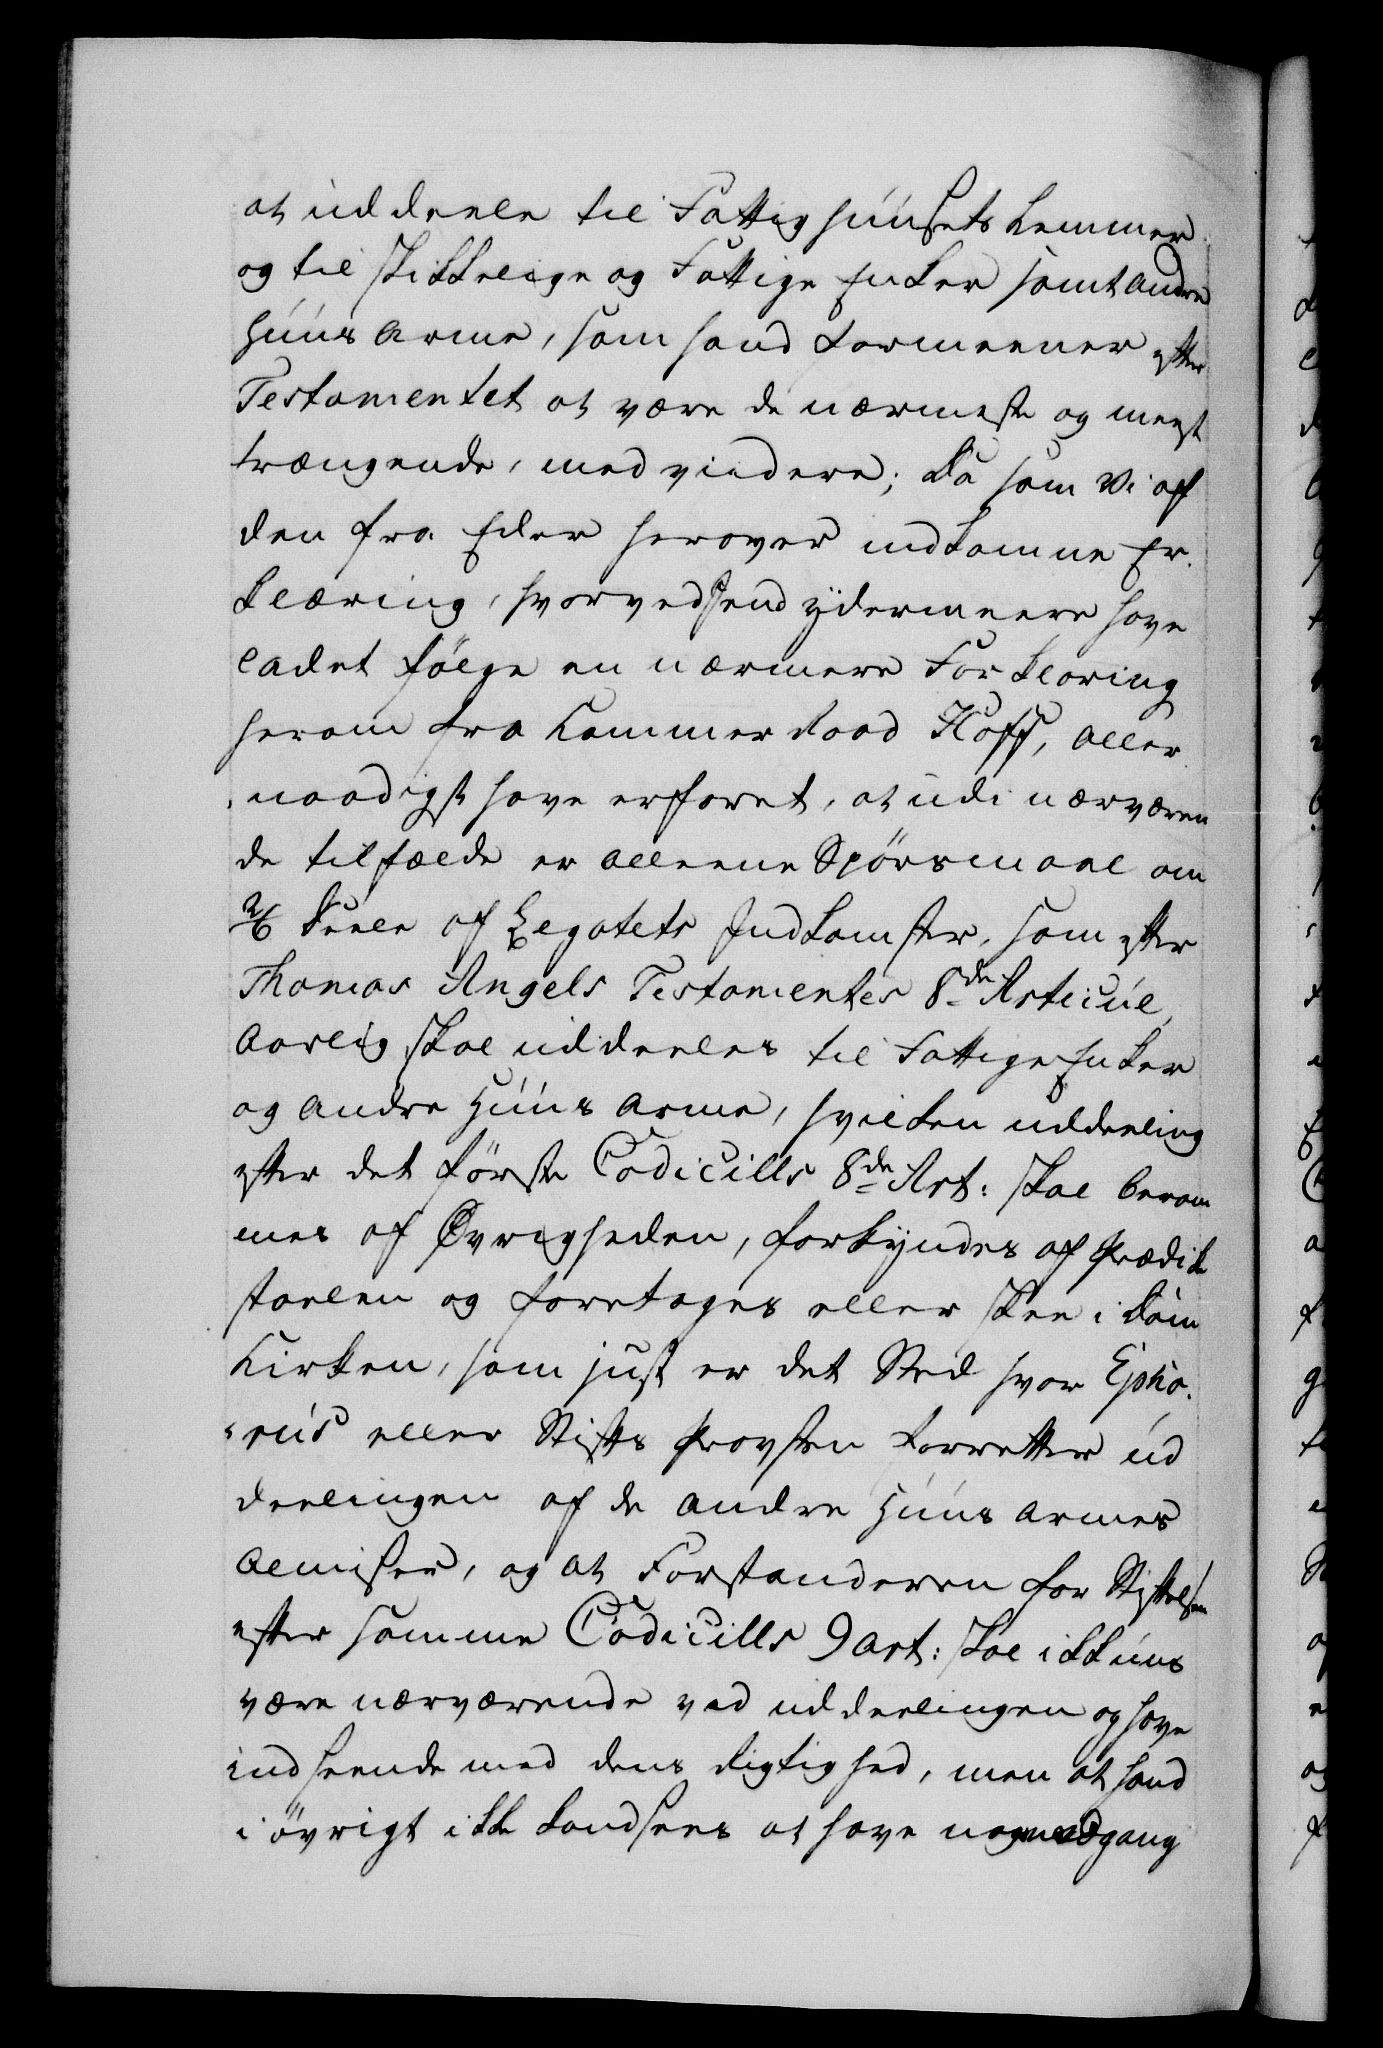 at uddeele til Fattighuusets Lemmer
og til skikkelige og Fattige Enker samt andre
Huus arme, som hand formeener efter
Testamentet at være de nærmeste og meest
trængende, med videre; Da som Vi af
den fra Eder herover indkomne Er¬
klæring, hvorved hend ÿdermeere have
ladet følge en nærmere Forklaring
herom fra Kammer Raad Hoff, aller
naadigst have erfaret, at udi nærværen
de tilfælde er alleene Spörsmaal om
2/6 Deele af Legatets Indkomster, som efter
Thomas Angels Testamentes 8de Articul,
aarlig skal uddeeles til Fattige Enker
og andre Huus arme, hvilken uddeeling
efter det förste Codicills 8de Art: skal beram
mes af Øvrigheden, forkÿndes af Prædik
stoelen og foretages eller skee i Dom
Kirken, som just er det Sted hvor Epho¬
rus eller Stifts Provsten forretter ud
deelingen af de andre Huus armes
almisser, og at Forstanderen for Stiftelsen
efter samme Codicills 9 art: skal ikkuns
være nærværende ved uddeelingen og have
indseende med dens Rigtighed, men at hand
i övrigt ikke kand sees at have nogen adgang